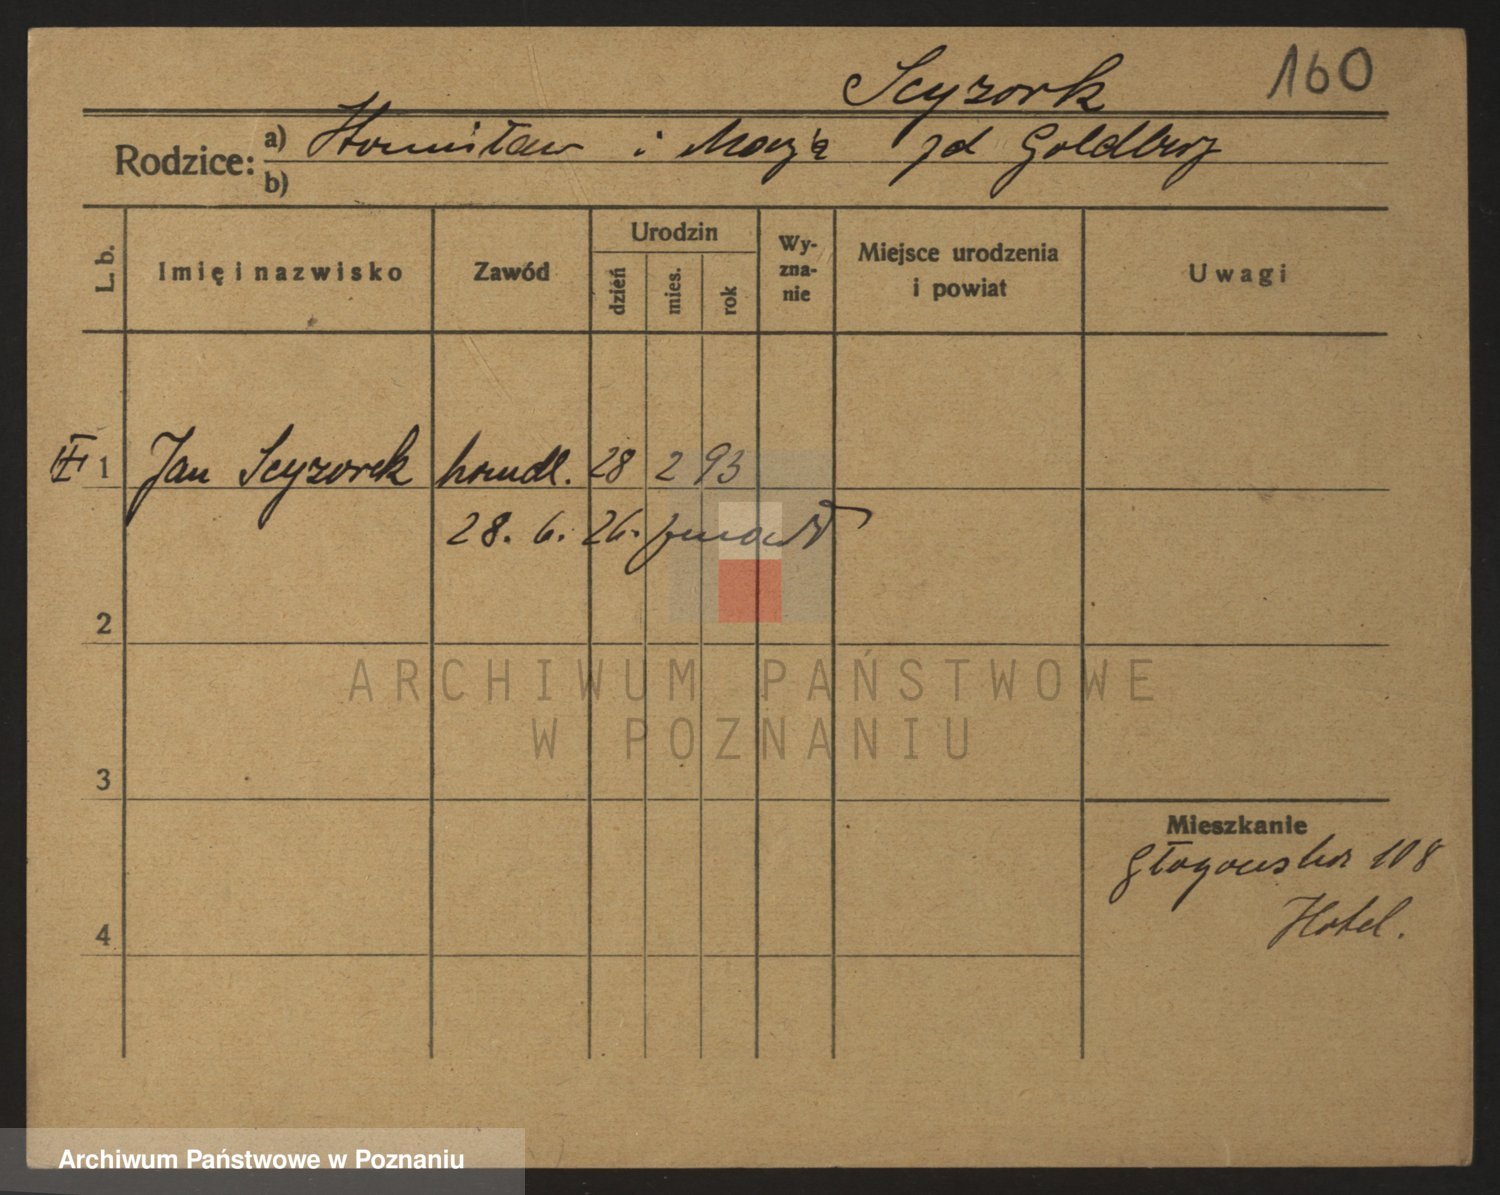 Scyzork 160
Rodzice: a) Stanisław i Marja zd Goldberg
b)
L. b. Imię i nazwisko Zawód Urodzin dzień mies. rok Wy-zna-nie Miejsce urodzenia i powiat Uwagi
1 Jan Scyzorek handl. 28 2 93
28. 6. 26. zmarł
2
3
Mieszkanie
Głogowska 108
Hotel.
4
ARCHIWUM PAŃSTWOWE
W POZNANIU
Archiwum Państwowe w Poznaniu